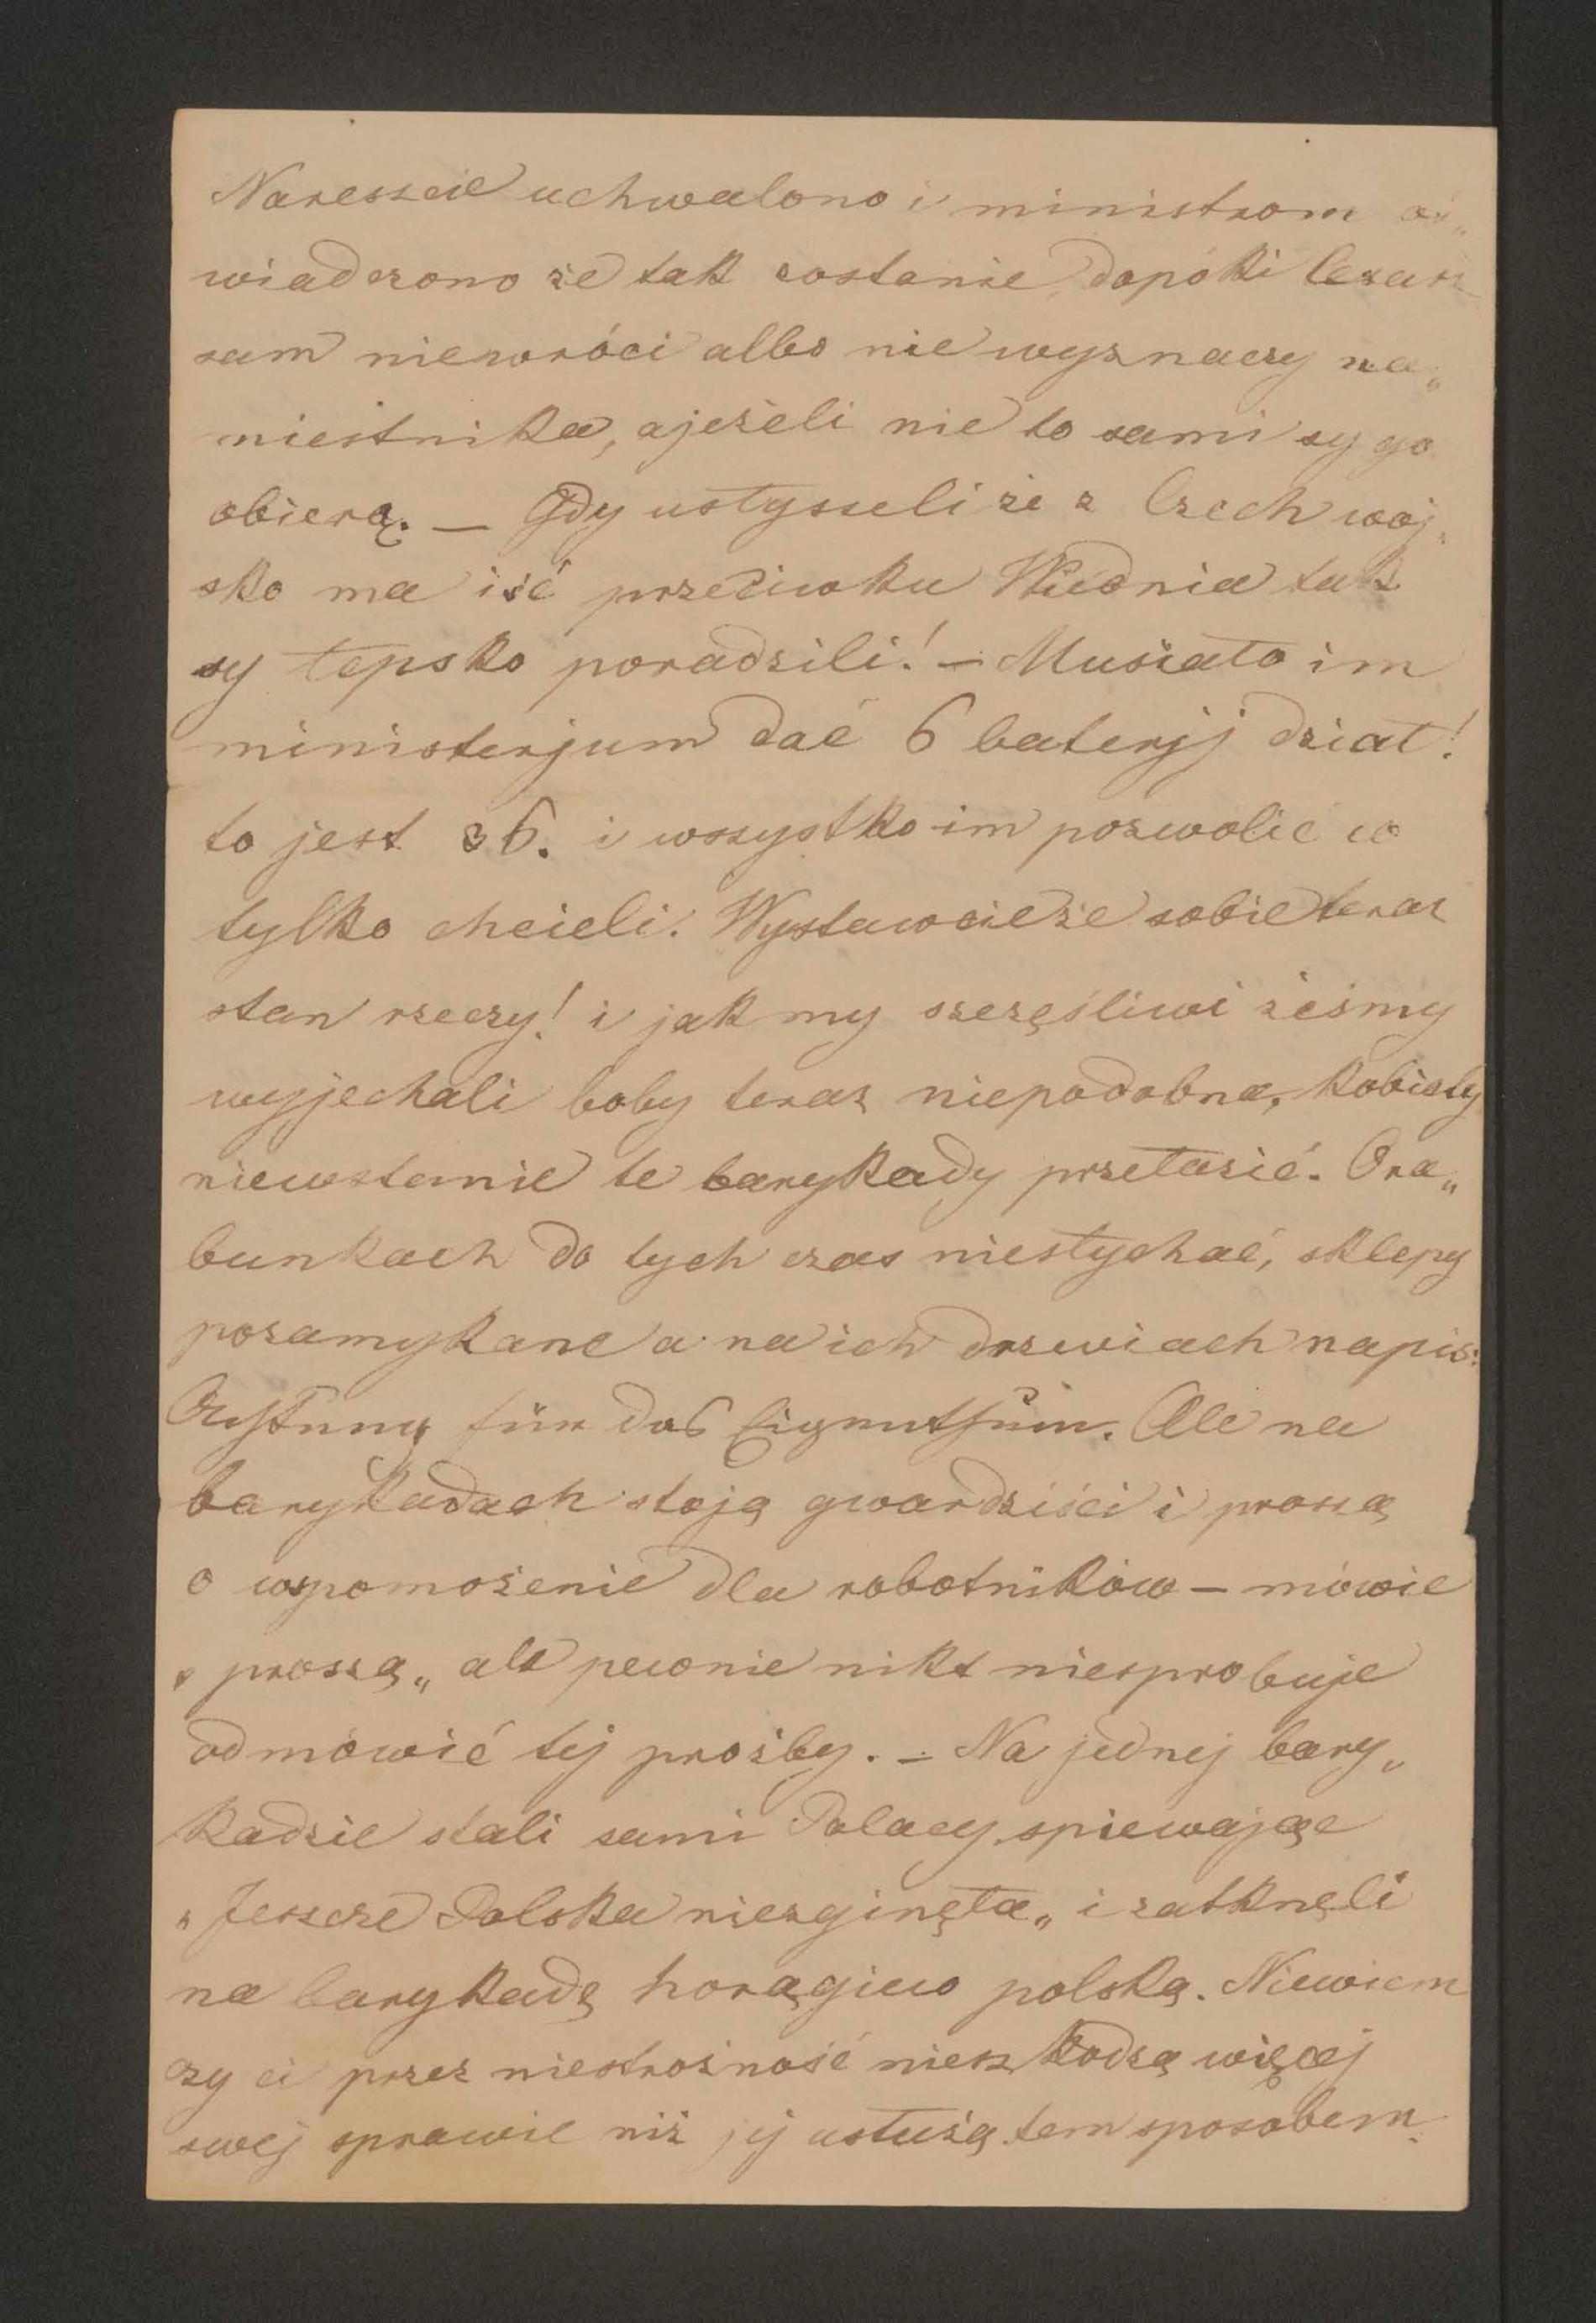 Nareszcie uchwalono i ministrom oś„
wiadczono że tak zostanie dopóki Cesarz
sam niewróci albo nie wyznaczy na„
miestnika, a jeżeli nie to sami sy go
obierą. — Gdy usłyszeli że z Czech woj„
sko ma iść przeciwko Wiednia tak
sy tęgsko poradzili! — Musiało im
ministerjum dać 6 baterjj dział!
to jest 36. i wszystko im pozwolić co
tylko chcieli. Wystawcie że sobie teraz
stan rzeczy! i jak my szczęśliwi żeśmy
wyjechali boby teraz niepodobna, kobiety
niewstanie te barykady przełazić. O ra„
bunkach do tych czas niesłychać, sklepy
pozamykane a na ich drzwiach napis:
Achtung für das Eigenthum. Ale na
barykadach stoją gwardziści i proszą
o wspomożenie dla robotników — mówie
„ proszą „ ale pewnie nikt niesprobuje
odmówić tej prośby. — Na jednej bary„
kadzie stali sami Polacy spiewając
„ Jeszcze Polska niezginęła „ i zatknęli
na barykadę horągiew polską. Niewiem
czy ci przez niestrożność nieszkodzą więcej
swej sprawie niż jej usłużą tem sposobem.